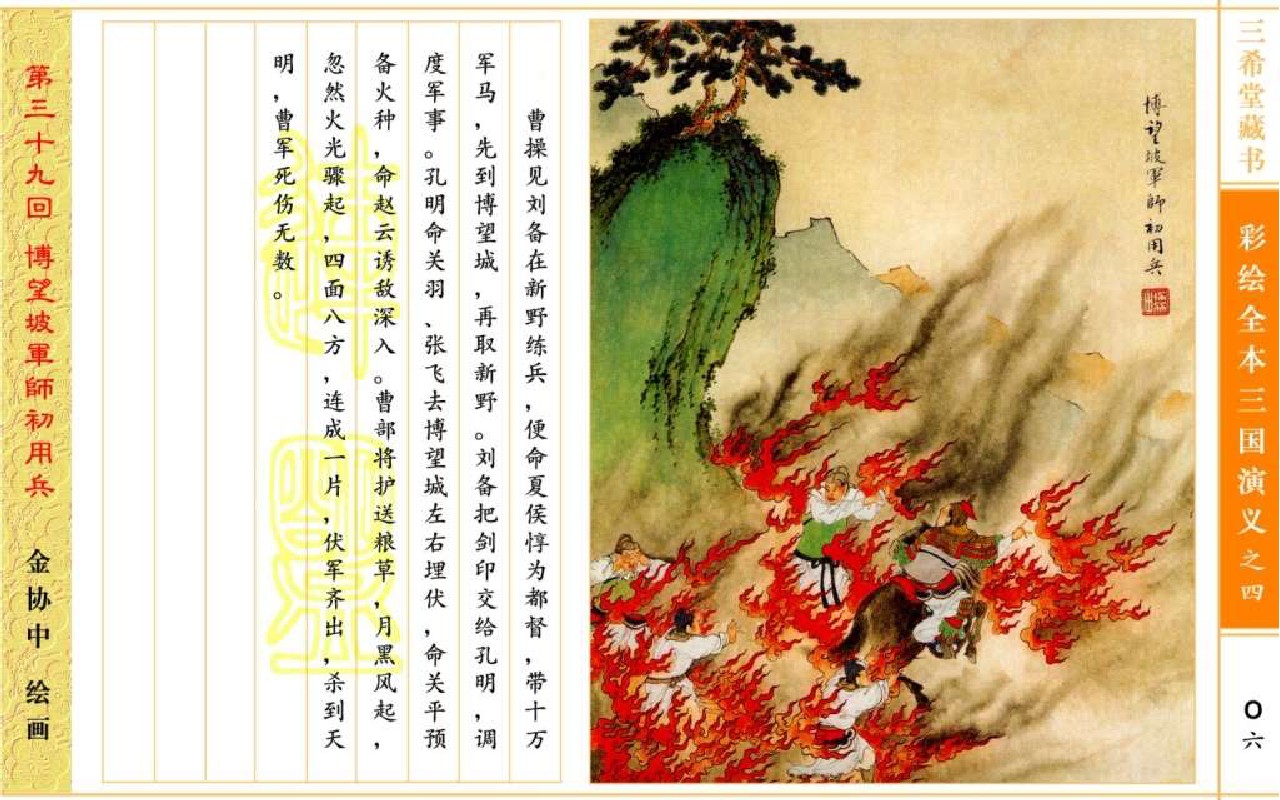 三希堂藏书
彩绘全本三国演义之四
〇六
博望坡軍師初用兵
曹操见刘备在新野练兵，便命夏侯惇为都督，带十万
军马，先到博望城，再取新野。刘备把剑印交给孔明，调
度军事。孔明命关羽、张飞去博望城左右埋伏，命关平预
备火种，命赵云诱敌深入。曹部将护送粮草，月黑风起，
忽然火光骤起，四面八方，连成一片，伏军齐出，杀到天
明，曹军死伤无数。
第三十九回 博望坡軍師初用兵
金协中 绘画